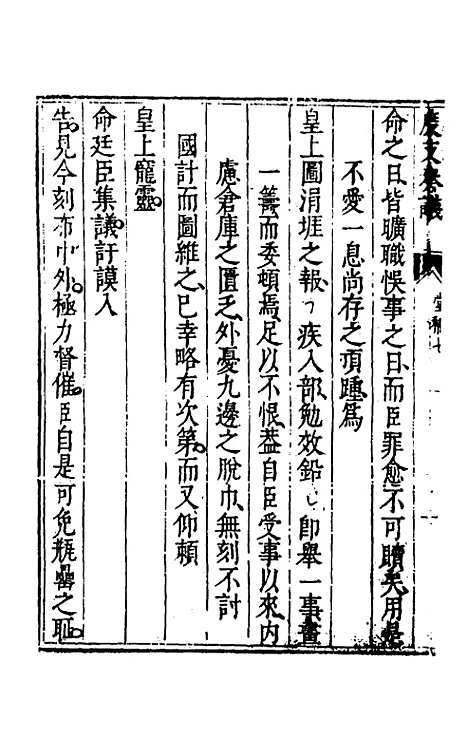 度支奏議
命之日皆曠職悞事之日而臣罪愈不可贖矣用是
不愛一息尚存之頂踵爲
皇上圖涓埋之報力疾入部勉效鉛 卽舉一事畫
一籌而委頓焉足以不恨葢自臣受事以來内
慮倉庫之匱乏外憂九邊之脫巾無刻不討
國計而圖維之已幸略有次第而又仰賴
皇上寵靈
命廷臣集議訏謨入
告見今刻布中外極力督催臣自是可免瓶罍之耻